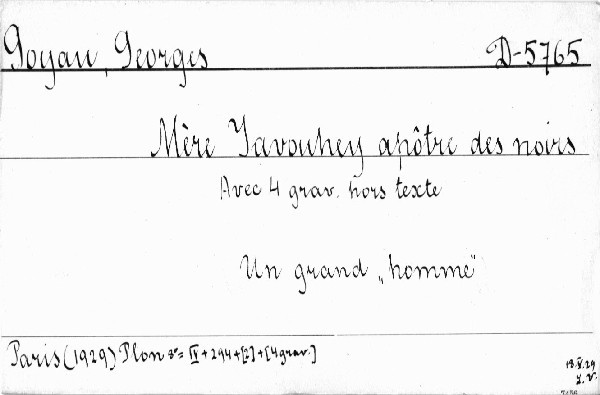 Goyau, Georges D-5765
Mère Javouhey apôtre des noirs
Avec 4 grav. hors texte
Un grand „homme"
Paris (1929) Plon 8°= [IV + 294 + [2] + [4 grav.]
18.V.29